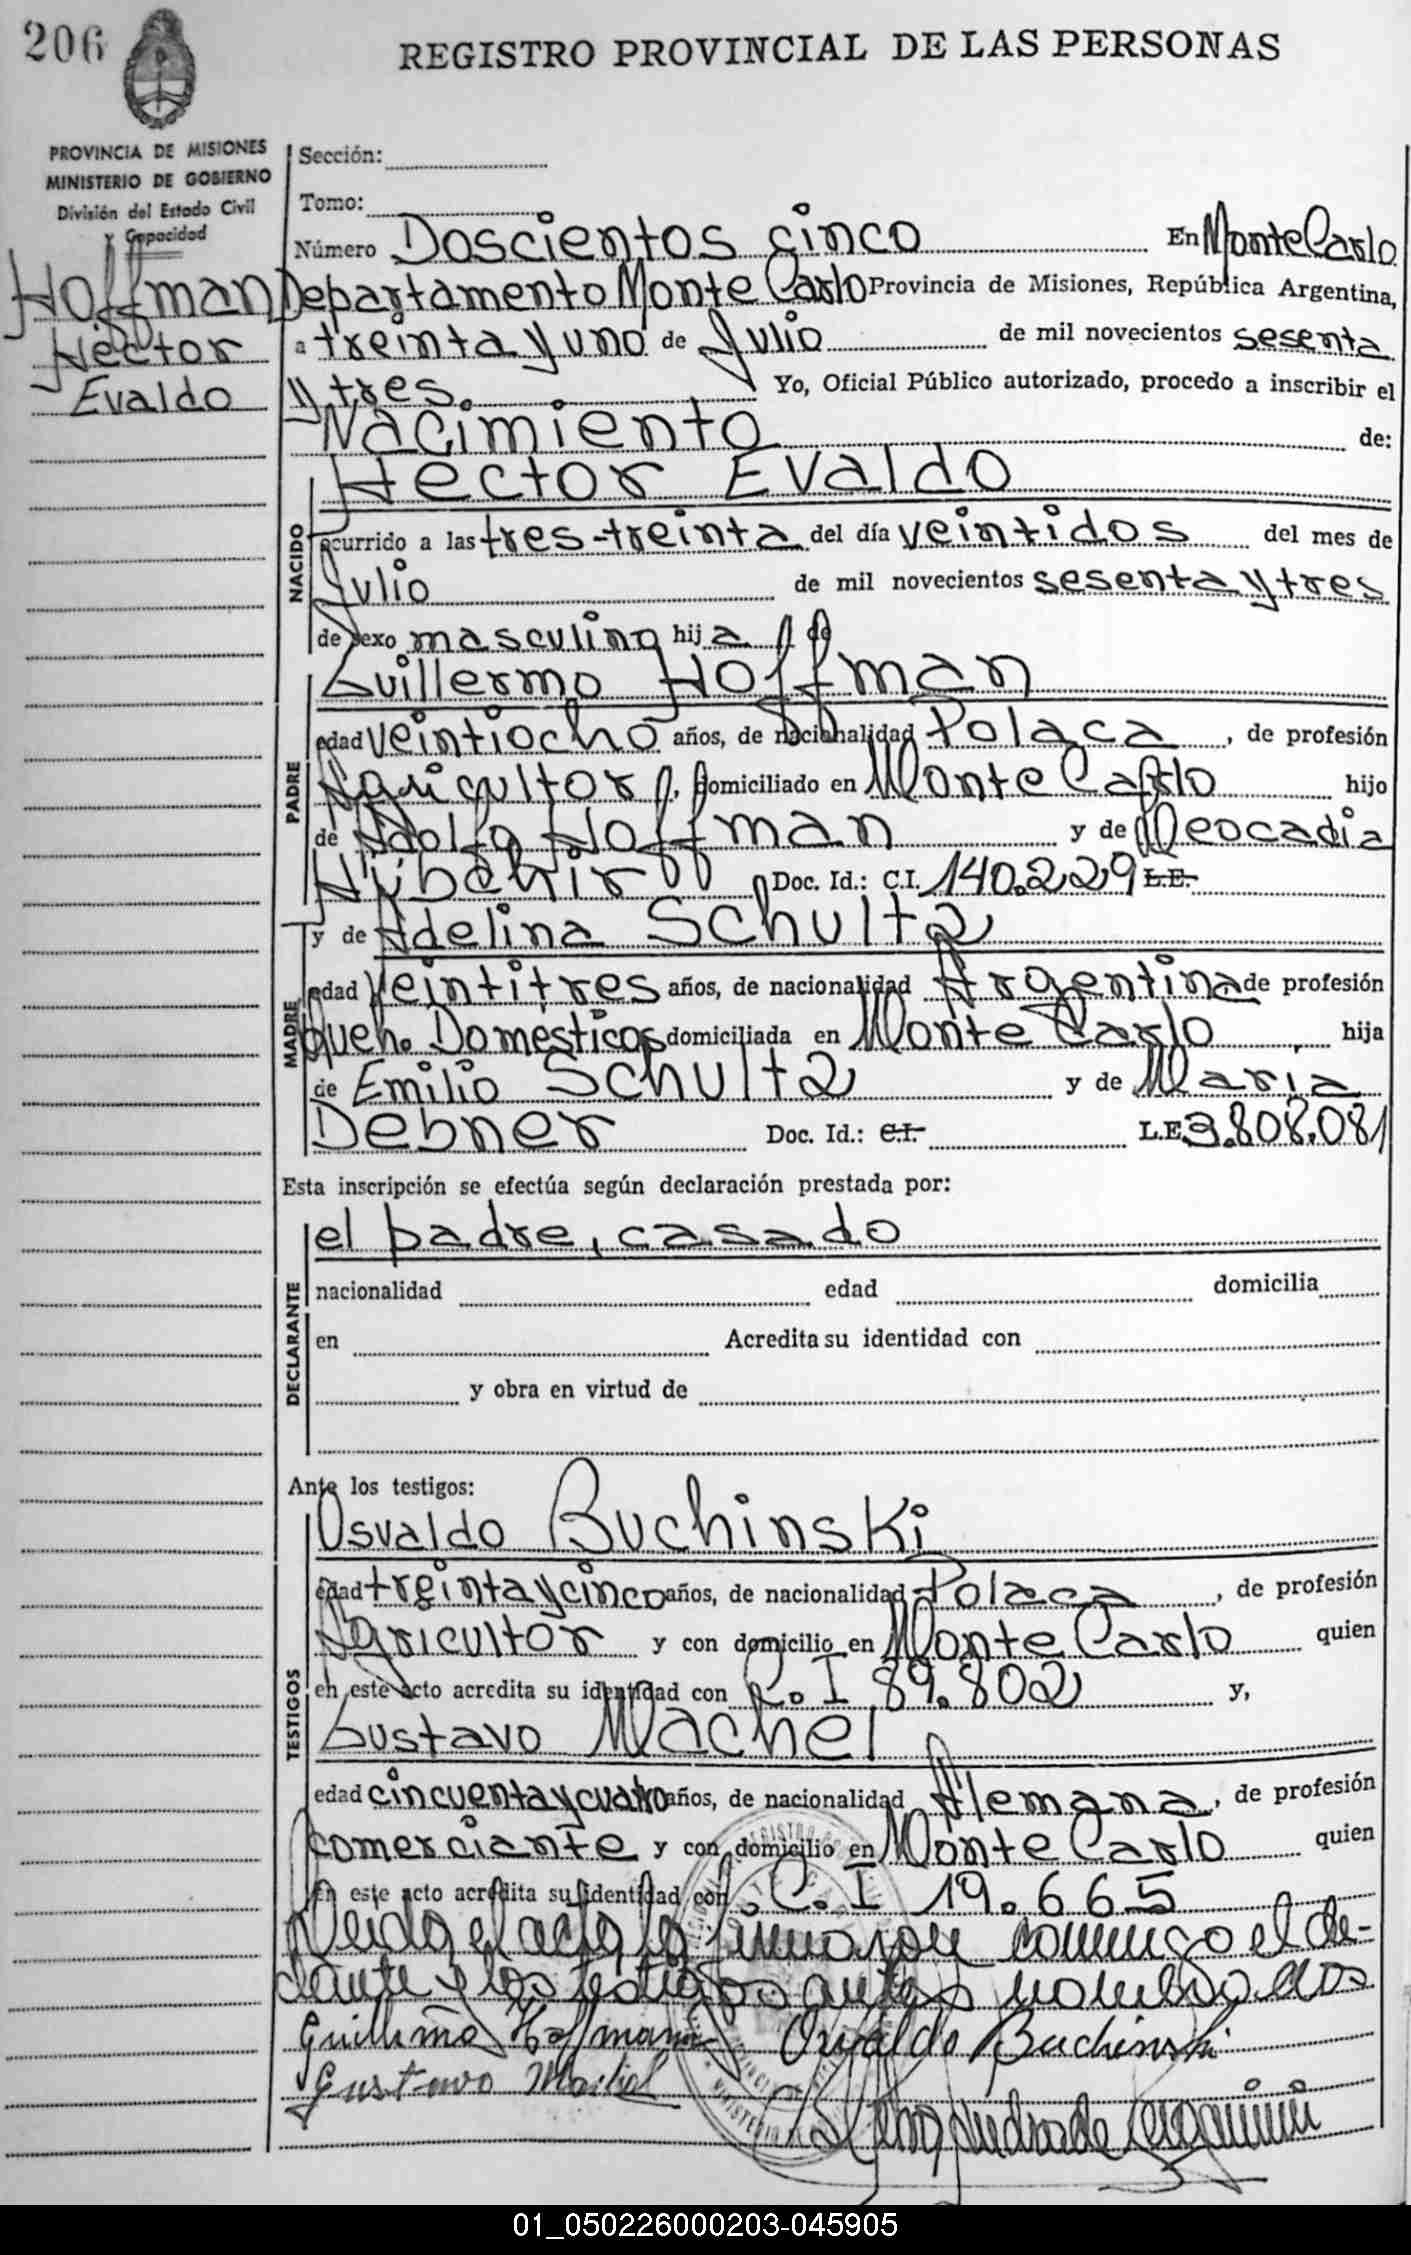 206
REGISTRO PROVINCIAL DE LAS PERSONAS
PROVINCIA DE MISIONES
MINISTERIO DE GOBIERNO
División del Estado Civil
y Capacidad
Hoffman
Hector
Evaldo
Sección:
Tomo:
Número Doscientos cinco En Monte Carlo
Departamento Monte Carlo Provincia de Misiones, República Argentina,
a treinta y uno de Julio de mil novecientos sesenta
y tres. Yo, Oficial Público autorizado, procedo a inscribir el
Nacimiento de:
NACIDO
Hector Evaldo
ocurrido a las tres-treinta del día veintidos del mes de
Julio de mil novecientos sesenta y tres
de sexo masculino hij a de
PADRE
Guillermo Hoffman
edad veintiocho años, de nacionalidad Polaca, de profesión
Agricultor, domiciliado en Monte Carlo hijo
de Adolfo Hoffman y de Leocadia
Doc. Id.: C.I. 140.229 L.E.
MADRE
y de Adelina Schultz
edad Veintitres años, de nacionalidad Argentina de profesión
Queh. Domésticos domiciliada en Monte Carlo, hija
de Emilio Schultz y de Maria
Debner Doc. Id.: C.I. L.E. 3.808.081
Esta inscripción se efectúa según declaración prestada por:
DECLARANTE
el padre, casado
nacionalidad edad domicilia
en Acredita su identidad con
y obra en virtud de
Ante los testigos:
TESTIGOS
Osvaldo Buchinski
edad treinta y cinco años, de nacionalidad Polaca, de profesión
Agricultor y con domicilio en Monte Carlo quien
en este acto acredita su identidad con C. I 89.802 y,
Gustavo Machel
edad cincuenta y cuatro años, de nacionalidad Alemana, de profesión
comerciante y con domicilio en Monte Carlo quien
en este acto acredita su identidad con C. I 19.665
Leida el acta la firmaron conmigo el de-
clarante y los testigos antes nombrados
Guillermo Hoffmann Osvaldo Buchinski
Gustavo Machel
01_050226000203-045905